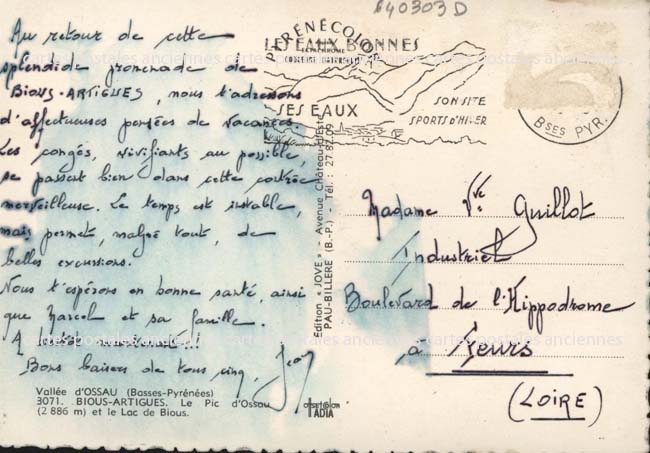 640303D
Au retour de cette
splendide promenade de
BIOUS-ARTIGUES, nous t'adressons
d'affectueuses pensées de vacances.
Les congés, vivifiants au possible,
se passent bien dans cette contrée
merveilleuse. Le temps est instable,
mais permet, malgré tout, de
belles excursions.
Nous t'espérons en bonne santé, ainsi
que Marcel et sa famille.
A bientôt
Bons baisers de tous cinq,
Jean
Vallée d'OSSAU (Basses-Pyrénées)
3071. BIOUS-ARTIGUES. Le Pic d'Ossau
(2 886 m) et le Lac de Bious.
PYRÉNÉCOLOR
LES EAUX BONNES
SES EAUX
SON SITE
SPORTS D'HIVER
BSES PYR.
Edition « JOVE » - Avenue Château-d'Este
PAU-BILLERE (B.-P.) - Tél. : 27.82.09
TADIA
Madame Vve Guillot
Industriel
Boulevard de l'Hippodrome
à Feurs
(LOIRE)
cartes postales anciennes cartes postales anciennes
cartes postales anciennes cartes postales anciennes